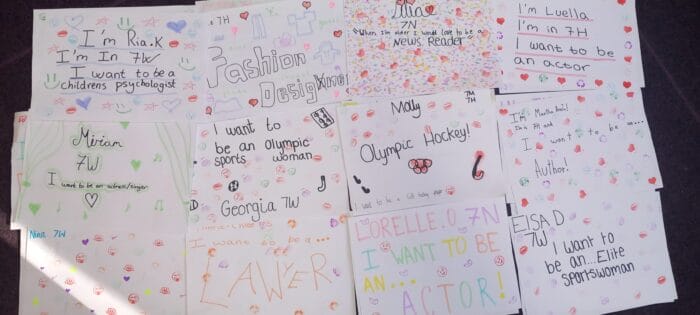 I'm Ria.K
I'm In 7W
I want to be a
childrens psychologist
7H
Fashion
Designer
7N
When I'm older I would love to be a
News Reader
I'm Luella
I'm in 7H
I want to be
an actor
Miriam
7W
I want to be an actress/singer
I want to
be an Olympic
sports woman
Georgia 7W
Molly
7M
7H
Olympic Hockey!
I want to be
Author!
Nina 7W
I want to be a...
LAWYER
LORELLE.O 7N
I WANT TO BE
AN...
ACTOR!
ELSA D
7W
I want to
be an...Elite
sportswoman